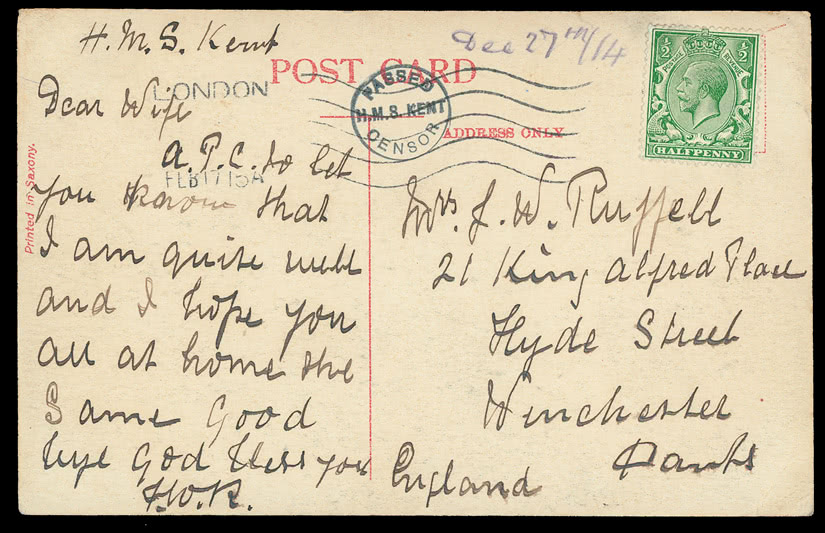 H.M.S. Kent
Dec 27th/14
POST CARD
LONDON
FEB 17 15A
PASSED
H.M.S. KENT
CENSOR
½ ½
HALFPENNY
ADDRESS ONLY
Printed in Saxony.
Dear Wife
A.P.C. to let
you know that
I am quite well
and I hope you
all at home the
Same Good
bye God bless you
F.W.R.
Mrs. J. W. Ruffell
21 King Alfred Place
Hyde Street
Winchester
Hants
England